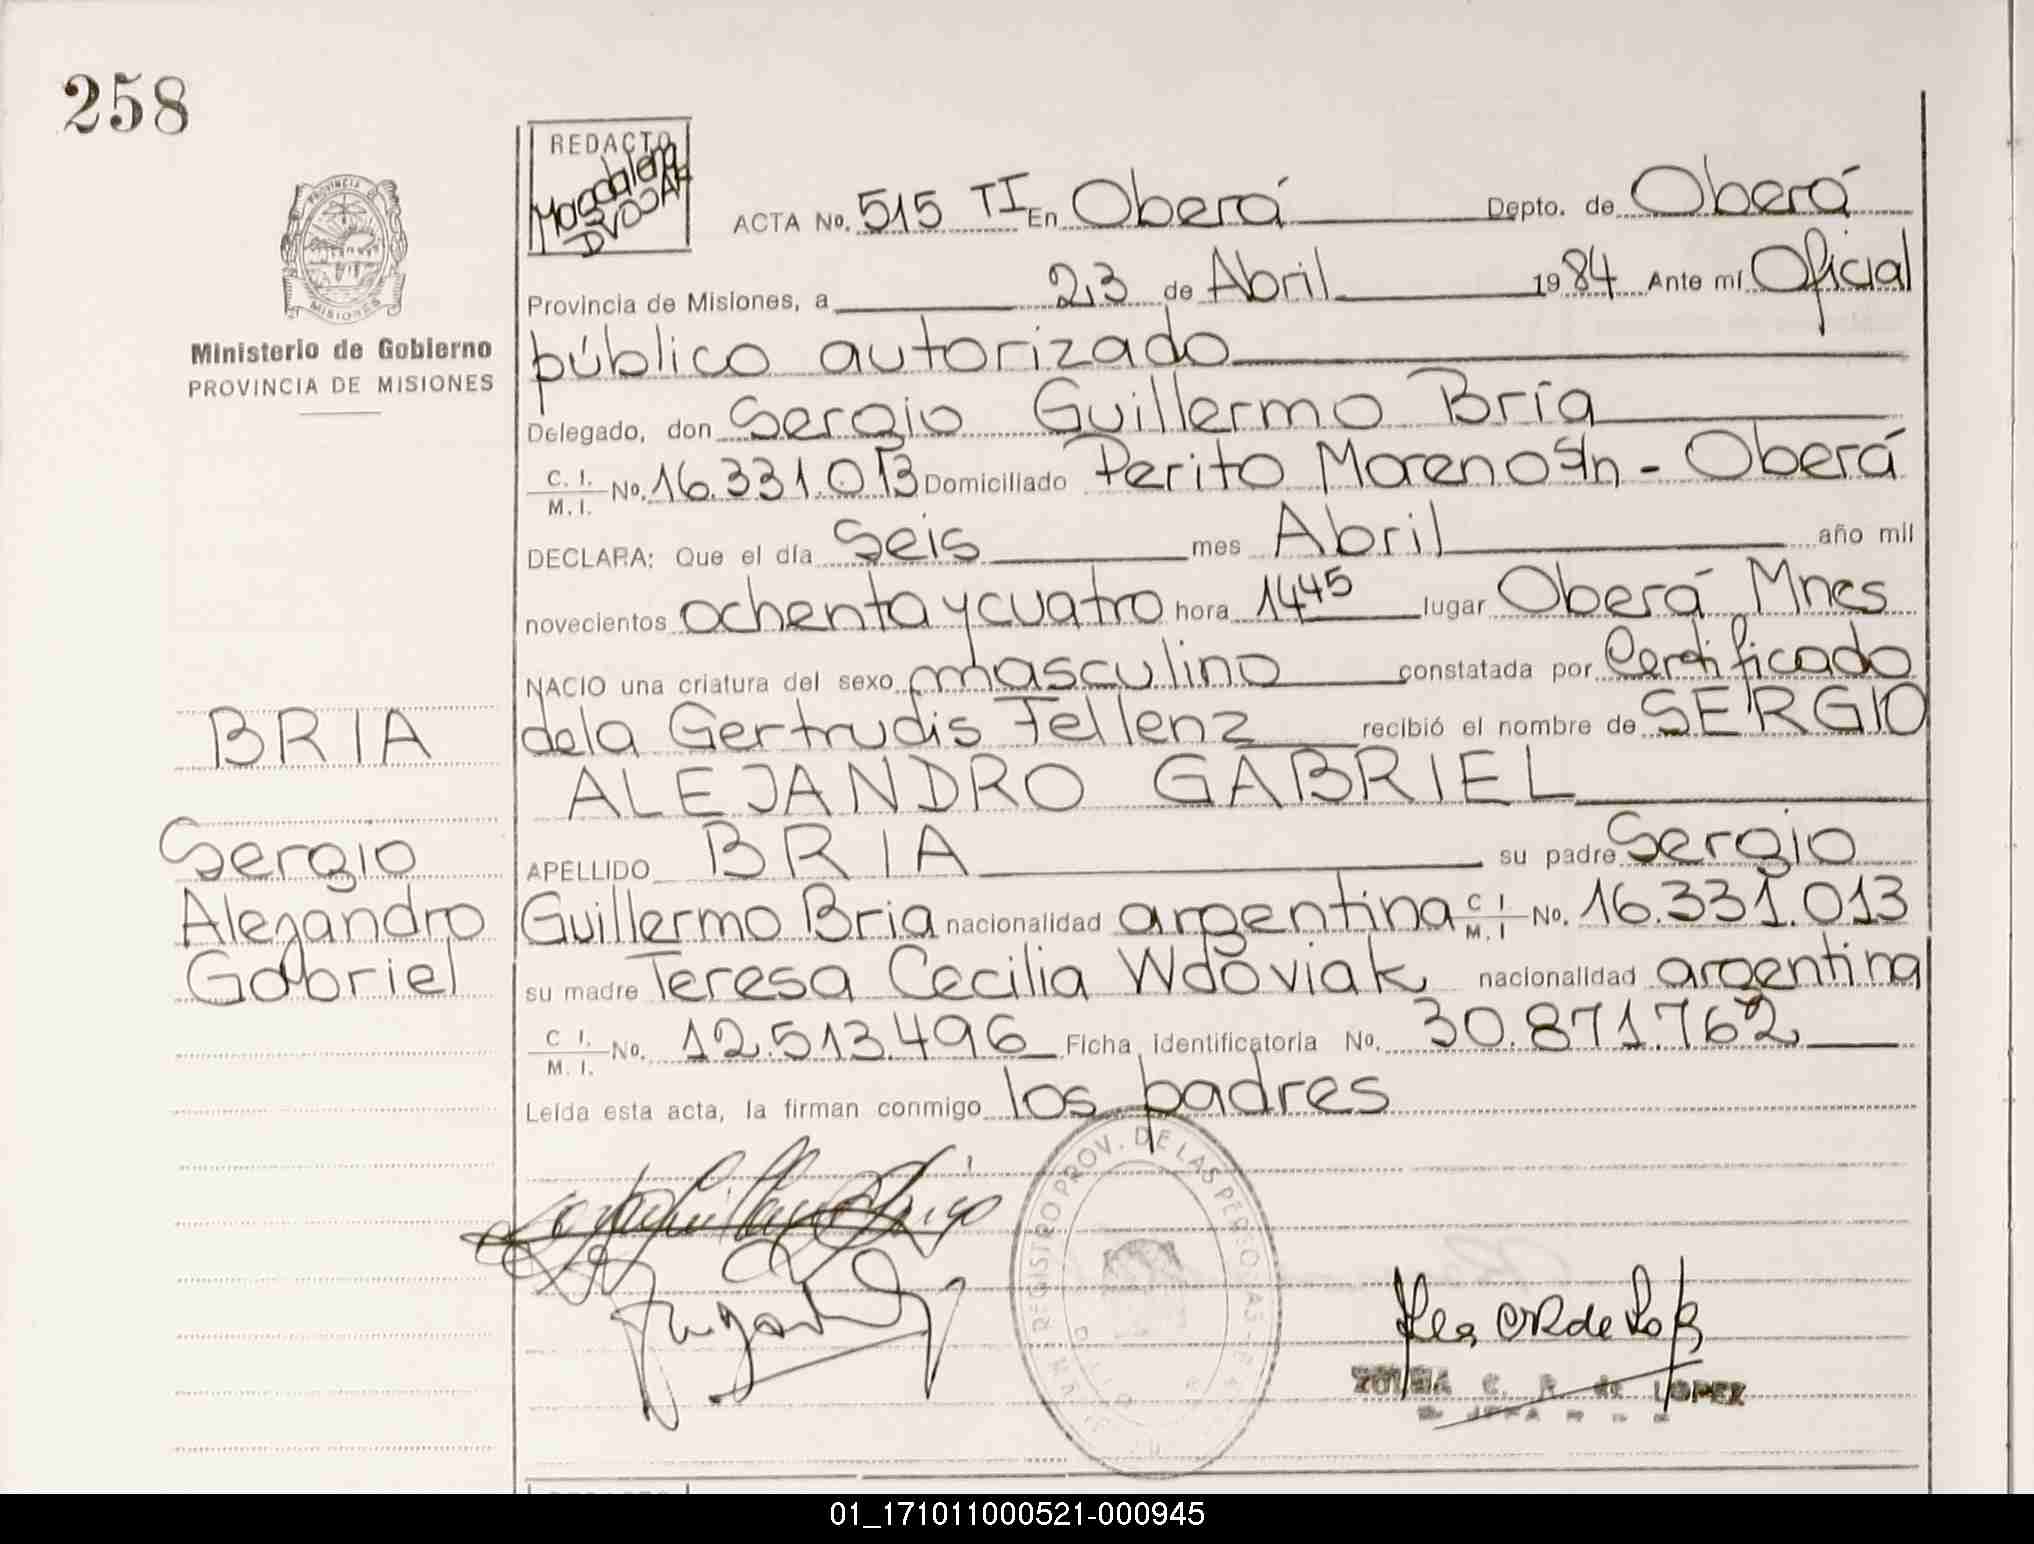 258
REDACTO
Magdalena
DVOJAK
PROVINCIA
MISIONES
Ministerio de Gobierno
PROVINCIA DE MISIONES
ACTA No. 515 TI En Oberá Depto. de Oberá
Provincia de Misiones, a 23 de Abril 1984 Ante mí Oficial
público autorizado
Delegado, don Sergio Guillermo Bría
C. I. M. I. No. 16.331.013 Domiciliado Perito Moreno s/n - Oberá
DECLARA: Que el día Seis mes Abril año mil
novecientos ochenta y cuatro hora 14 45 lugar Oberá Mnes
NACIO una criatura del sexo masculino constatada por Certificado
de la Gertrudis Fellenz recibió el nombre de SERGIO
ALEJANDRO GABRIEL
APELLIDO BRIA su padre Sergio
Guillermo Bria nacionalidad argentina C I M. I No. 16.331.013
su madre Teresa Cecilia Wdoviak nacionalidad argentina
C I. M. I. No. 12.513.496 Ficha identificatoria No. 30.871.762
Leída esta acta, la firman conmigo los padres
BRIA
Sergio
Alejandro
Gabriel
REGISTRO PROV. DE LAS PERSONAS
C. R. de LOPEZ
01_171011000521-000945